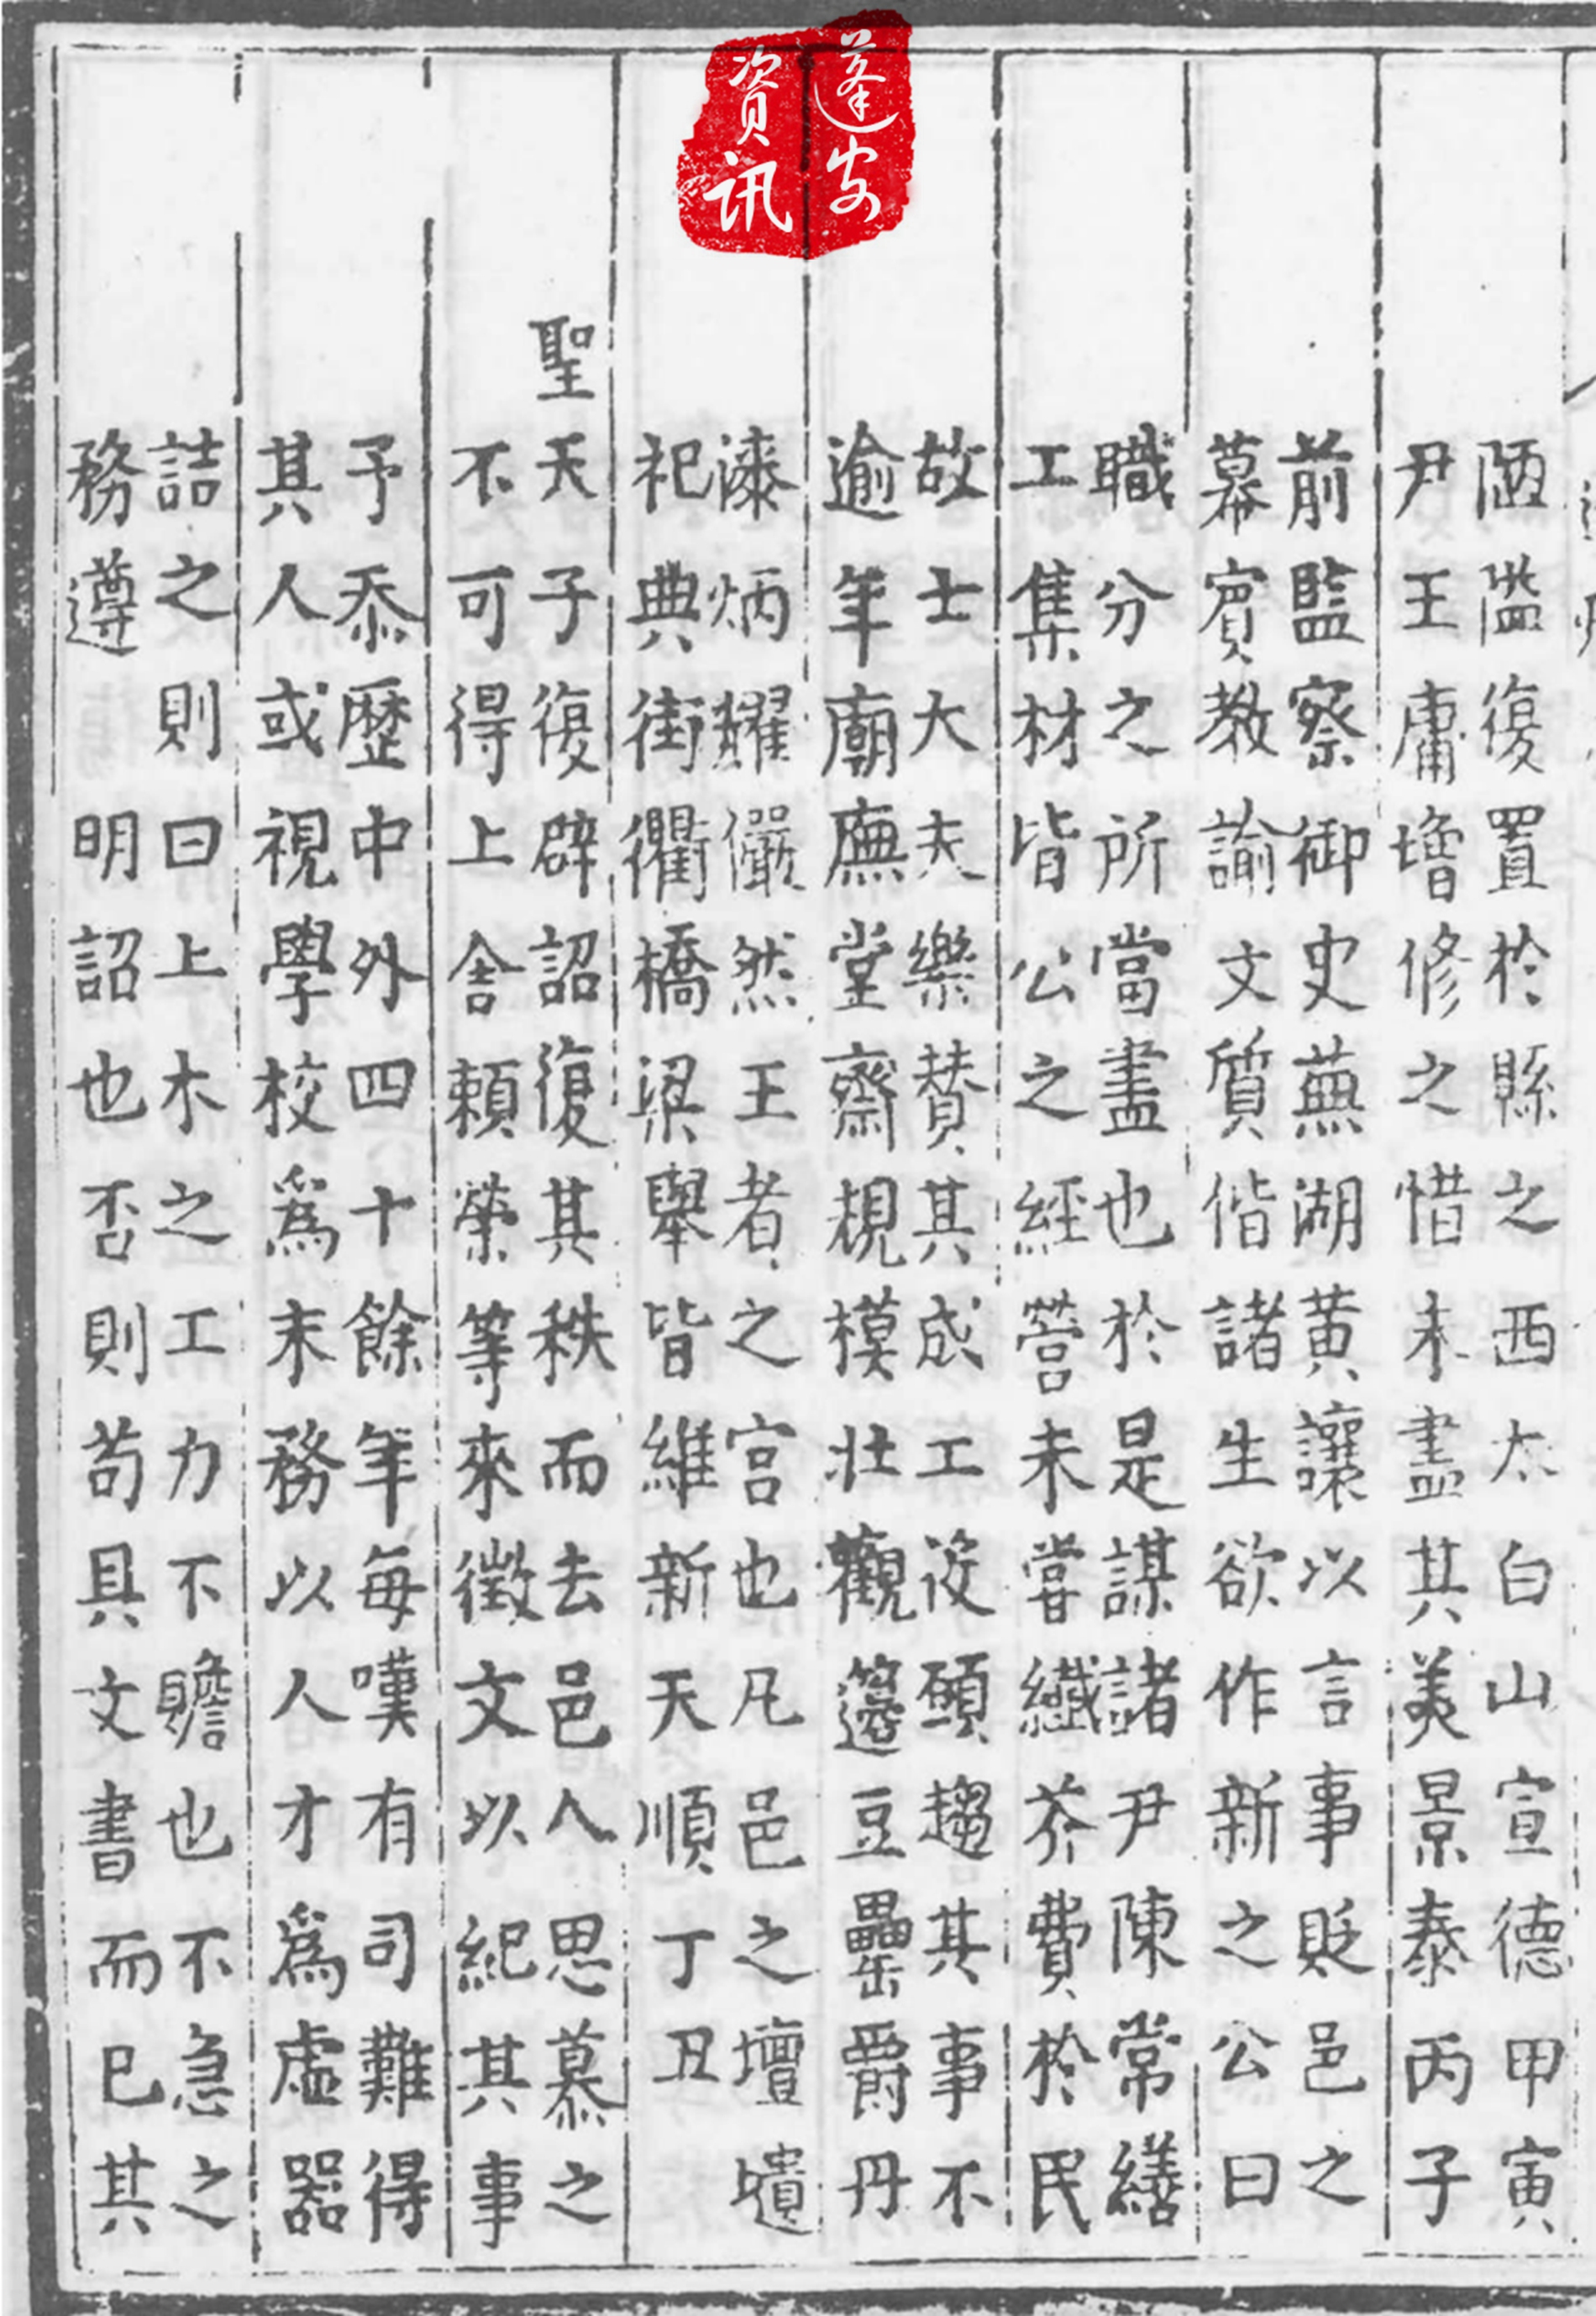 蓬安
资讯
陋隘復置於縣之西太白山宣德甲寅
尹王庸增修之惜未盡其美景泰丙子
前監察御史蕪湖黄讓以言事貶邑之
幕賓教諭文質偕諸生欲作新之公曰
職分之所當盡也於是謀諸尹陳常繕
工集材皆公之經營未嘗纎芥費於民
故士大夫樂賛其成工役頤趨其事不
逾年廟廡堂齋規模壯觀籩豆罍爵丹
漆炳耀儼然王者之宫也凡邑之壇壝
祀典街衢橋梁舉皆維新天順丁丑
聖天子復辟詔復其秩而去邑人思慕之
不可得上舍頼榮等來徵文以紀其事
予忝歷中外四十餘年每嘆有司難得
其人或視學校爲末務以人才爲虚器
詰之則曰上木之工力不贍也不急之
務遵明詔也否則苟具文書而已其